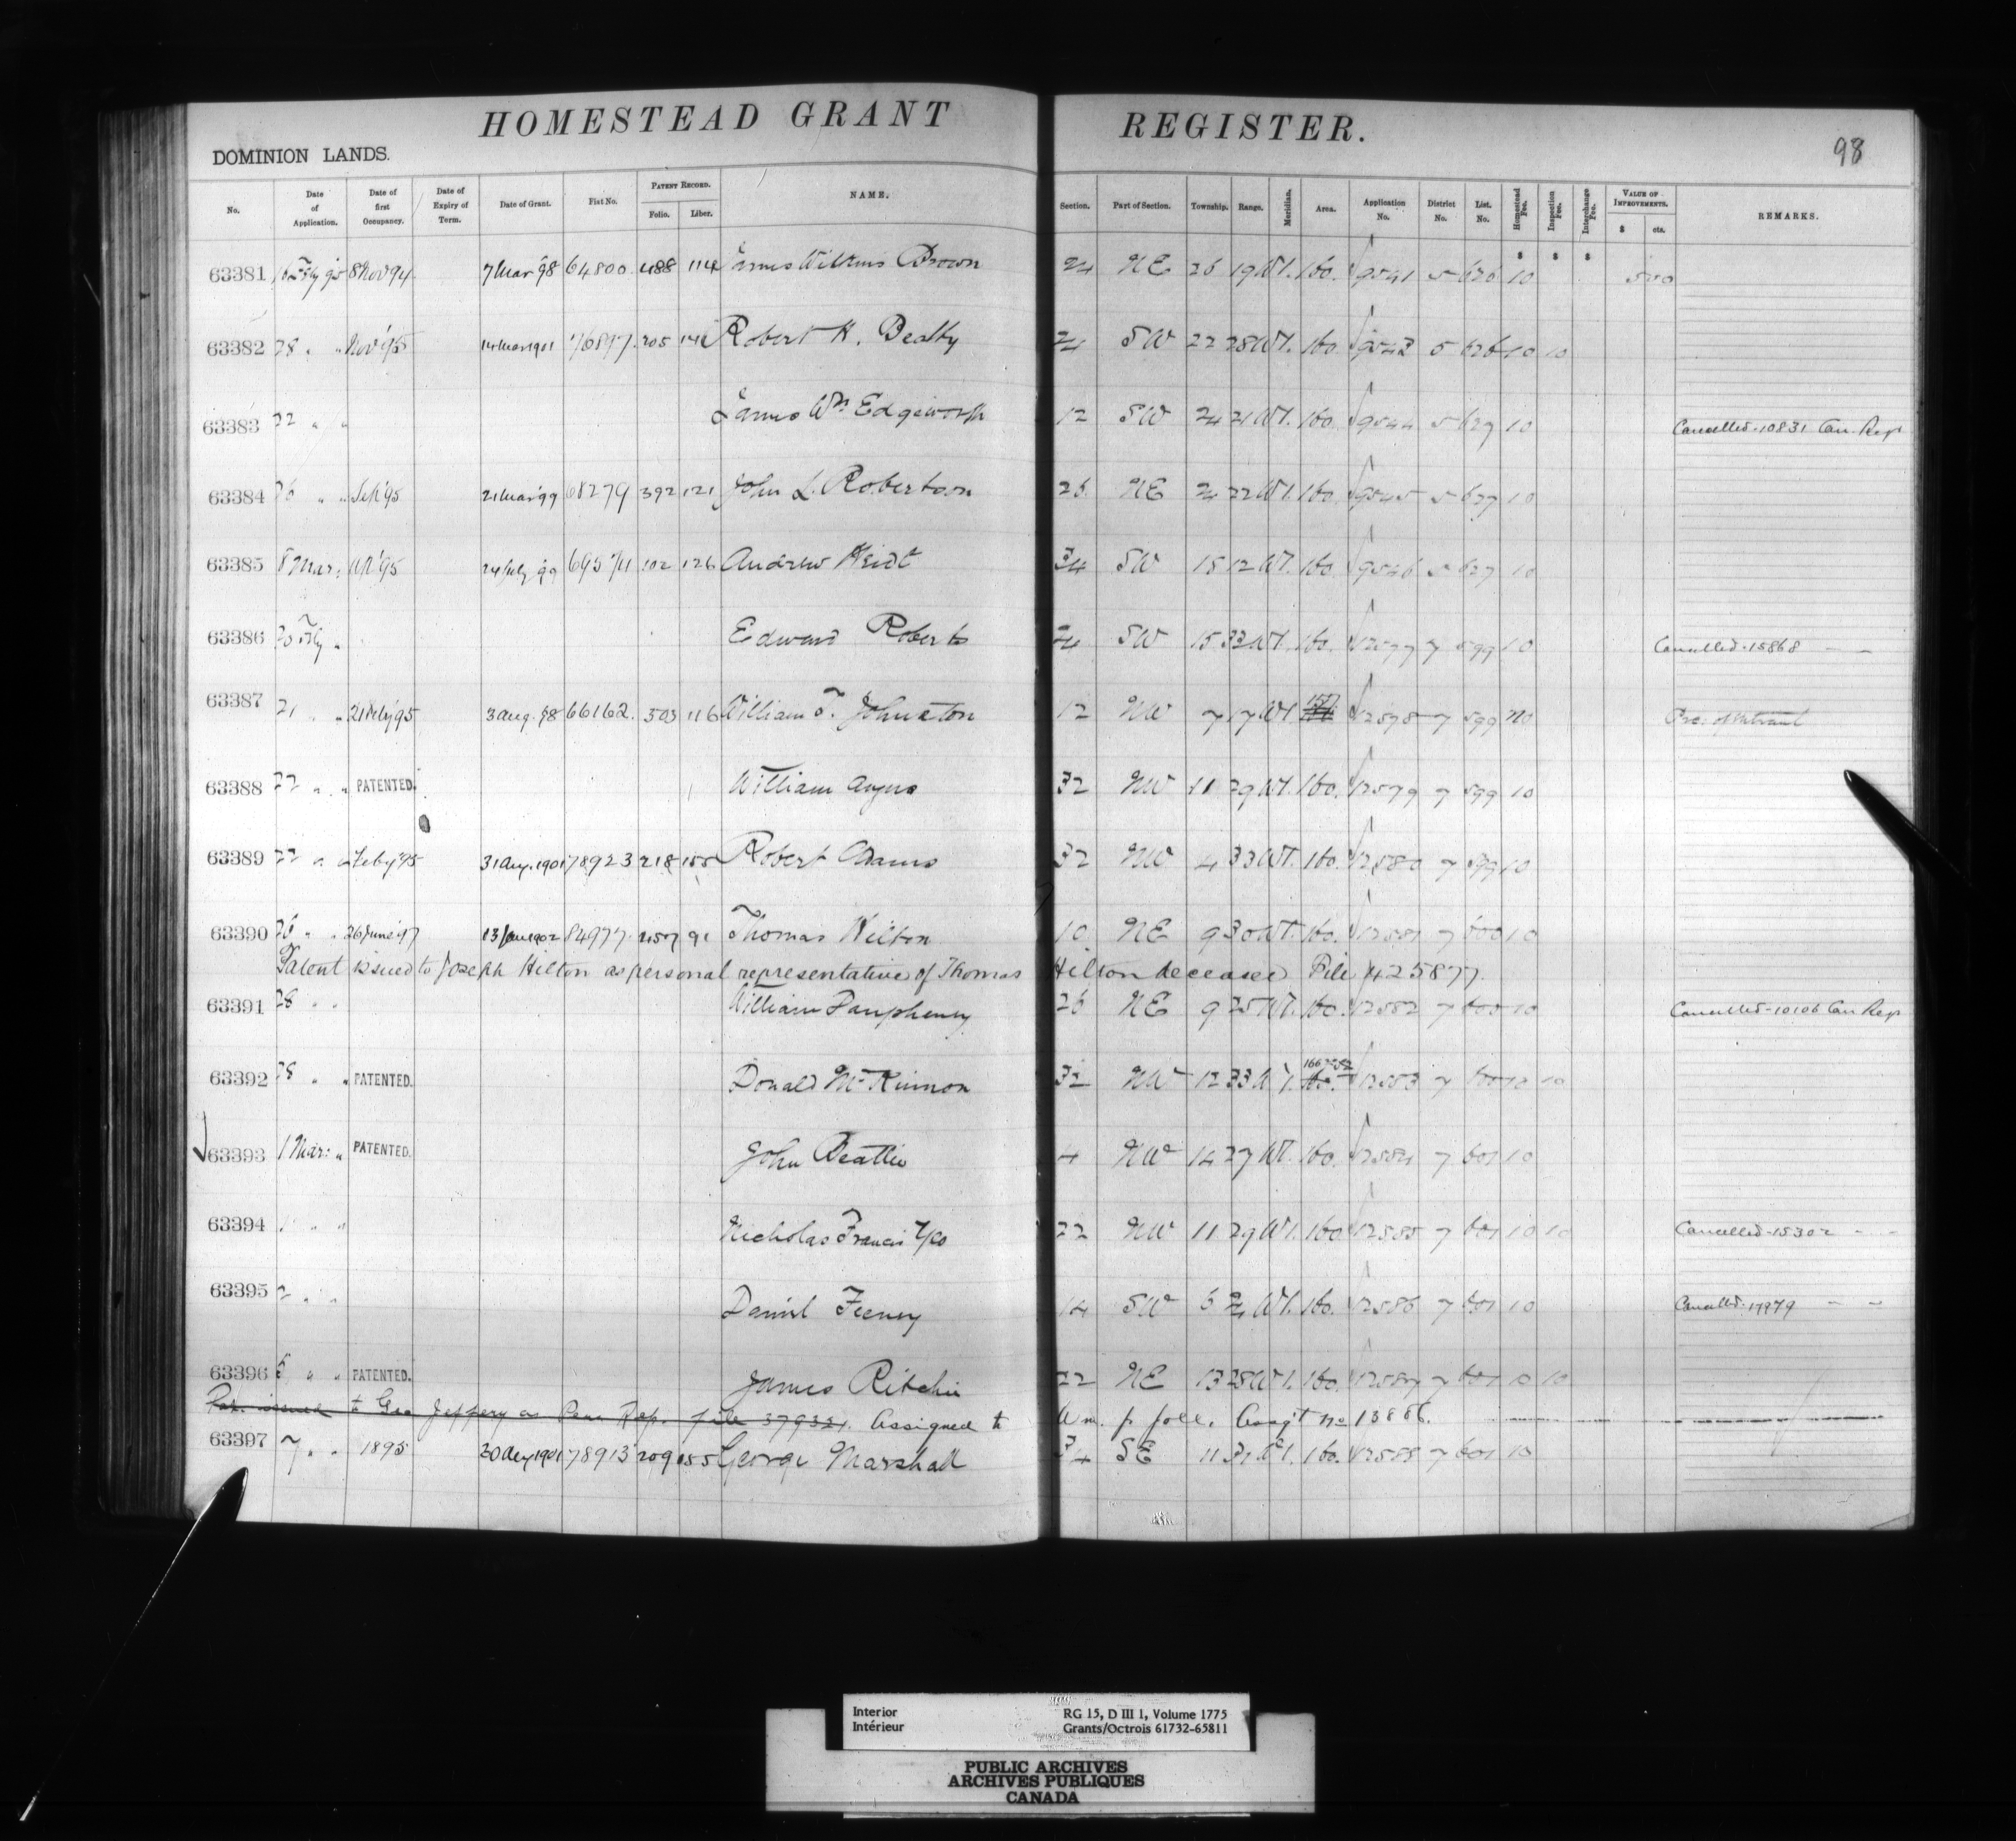 HOMESTEAD GRANT REGISTER.
98
DOMINION LANDS.
No. Date of Application. Date of first Occupancy. Date of Expiry of Term. Date of Grant. Fiat No. PATENT RECORD. Folio. Liber. NAME. Section. Part of Section. Township. Range. Meridian. Area. Application No. District No. List. No. Homestead Fee. Inspection Fee. Interchange Fee. VALUE OF IMPROVEMENTS. $ cts. REMARKS.
$ $ $
63381 8 Nov 94 7 Mar '98 64800. 488 114 James Wilkins Brown 24 NE 26 19 W1. 160. 9541 5 626 10 500
63382 28 " " Nov '95 14 Mar 1901 76897. 205 Robert H. Beatty 24 SW 22 28 W1. 160. 9543 5 626 10 10
63383 22 " " James Wm Edgeworth 12 SW 24 21 W1. 160. 9544 5 627 10 Cancelled. 10831 Can. Regr
63384 26 " " Sep '95 21 Mar '99 68279 392 121 John L. Robertson 26 NE 24 22 W1. 160. 9545 5 627 10
63385 8 Mar: Ap '95 24 July '99 69574 102 126 Andrew Heidt 34 SW 15 12 W1. 160. 9546 5 627 10
63386 20 Fby " Edward Roberts 24 SW 15 32 W1. 160. 12577 7 599 10 Cancelled. 15868 — —
63387 21 " " 21 Feby '95 3 Aug. 98 66162. 503 116 William T. Johnston 12 NW 7 17 W1. 12578 7 599 no
63388 22 " " PATENTED. William Angus 32 NW 11 29 W1. 160. 12579 7 599 10
63389 22 " " Feby '95 31 Aug. 1901 78923 218 155 Robert Adams 32 NW 4 33 W1. 160. 12580 7 599 10
63390 26 " " 26 June '97 13 Jan 1902 84977. 457 91 Thomas Hilton 10 NE 9 30 W1. 160. 12581 7 600 10
Patent issued to Joseph Hilton as personal representative of Thomas Hilton deceased File 425877.
63391 28 " " William Pamphenny 26 NE 9 25 W1. 160. 12582 7 600 10 Cancelled. 10106 Can Regr
63392 28 " " PATENTED. Donald McKinnon 32 NW 12 33 W1. 160. 12583 7 600 10 10
63393 1 Mar: " PATENTED. John Beattie 4 NW 14 27 W1. 160. 12584 7 601 10
63394 1 " " Nicholas Francis 22 NW 11 29 W1. 160 12585 7 601 10 10 Cancelled. 15302 — —
63395 2 " " Daniel Feeney 14 SW 6 24 W1. 160. 12586 7 601 10 Cancelld. 17979 — —
63396 5 " " PATENTED. James Ritchie 22 NE 13 28 W1. 160. 12587 7 601 10 10
Pat. issued to Geo Jeffery as Pers Rep. file 379321. Assigned to Wm. p foll. Assg't no 13886.
63397 7 " " 1895 30 Aug 1901 78913 209 155 George Marshall 34 SE 11 31 W1. 160. 12588 7 601 10
Interior
Intérieur
RG 15, D III 1, Volume 1775
Grants/Octrois 61732-65811
PUBLIC ARCHIVES
ARCHIVES PUBLIQUES
CANADA